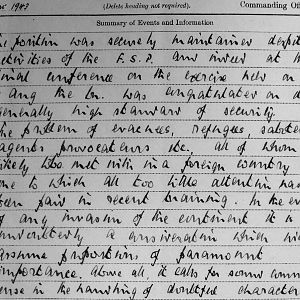 1943
(Delete heading not required).
Commanding Off
Summary of Events and Information
position was securely maintained despit
activities of the F.S.P. and indeed at th
inal conference on the exercise held on
Aug the Bn. was congratulated on
enerally high standard of security.
The problem of evacuees, refugees, sabote
agents provocateurs etc., all of whom
ikely to be met with in a foreign country
one to which all too little attention has
een paid in recent training. In the ev
of any invasion of the continent it is
undoubtedly a consideration which wil
assume proportions of paramount
importance. Above all, it calls for some comm
ense in the handling of doubtful character